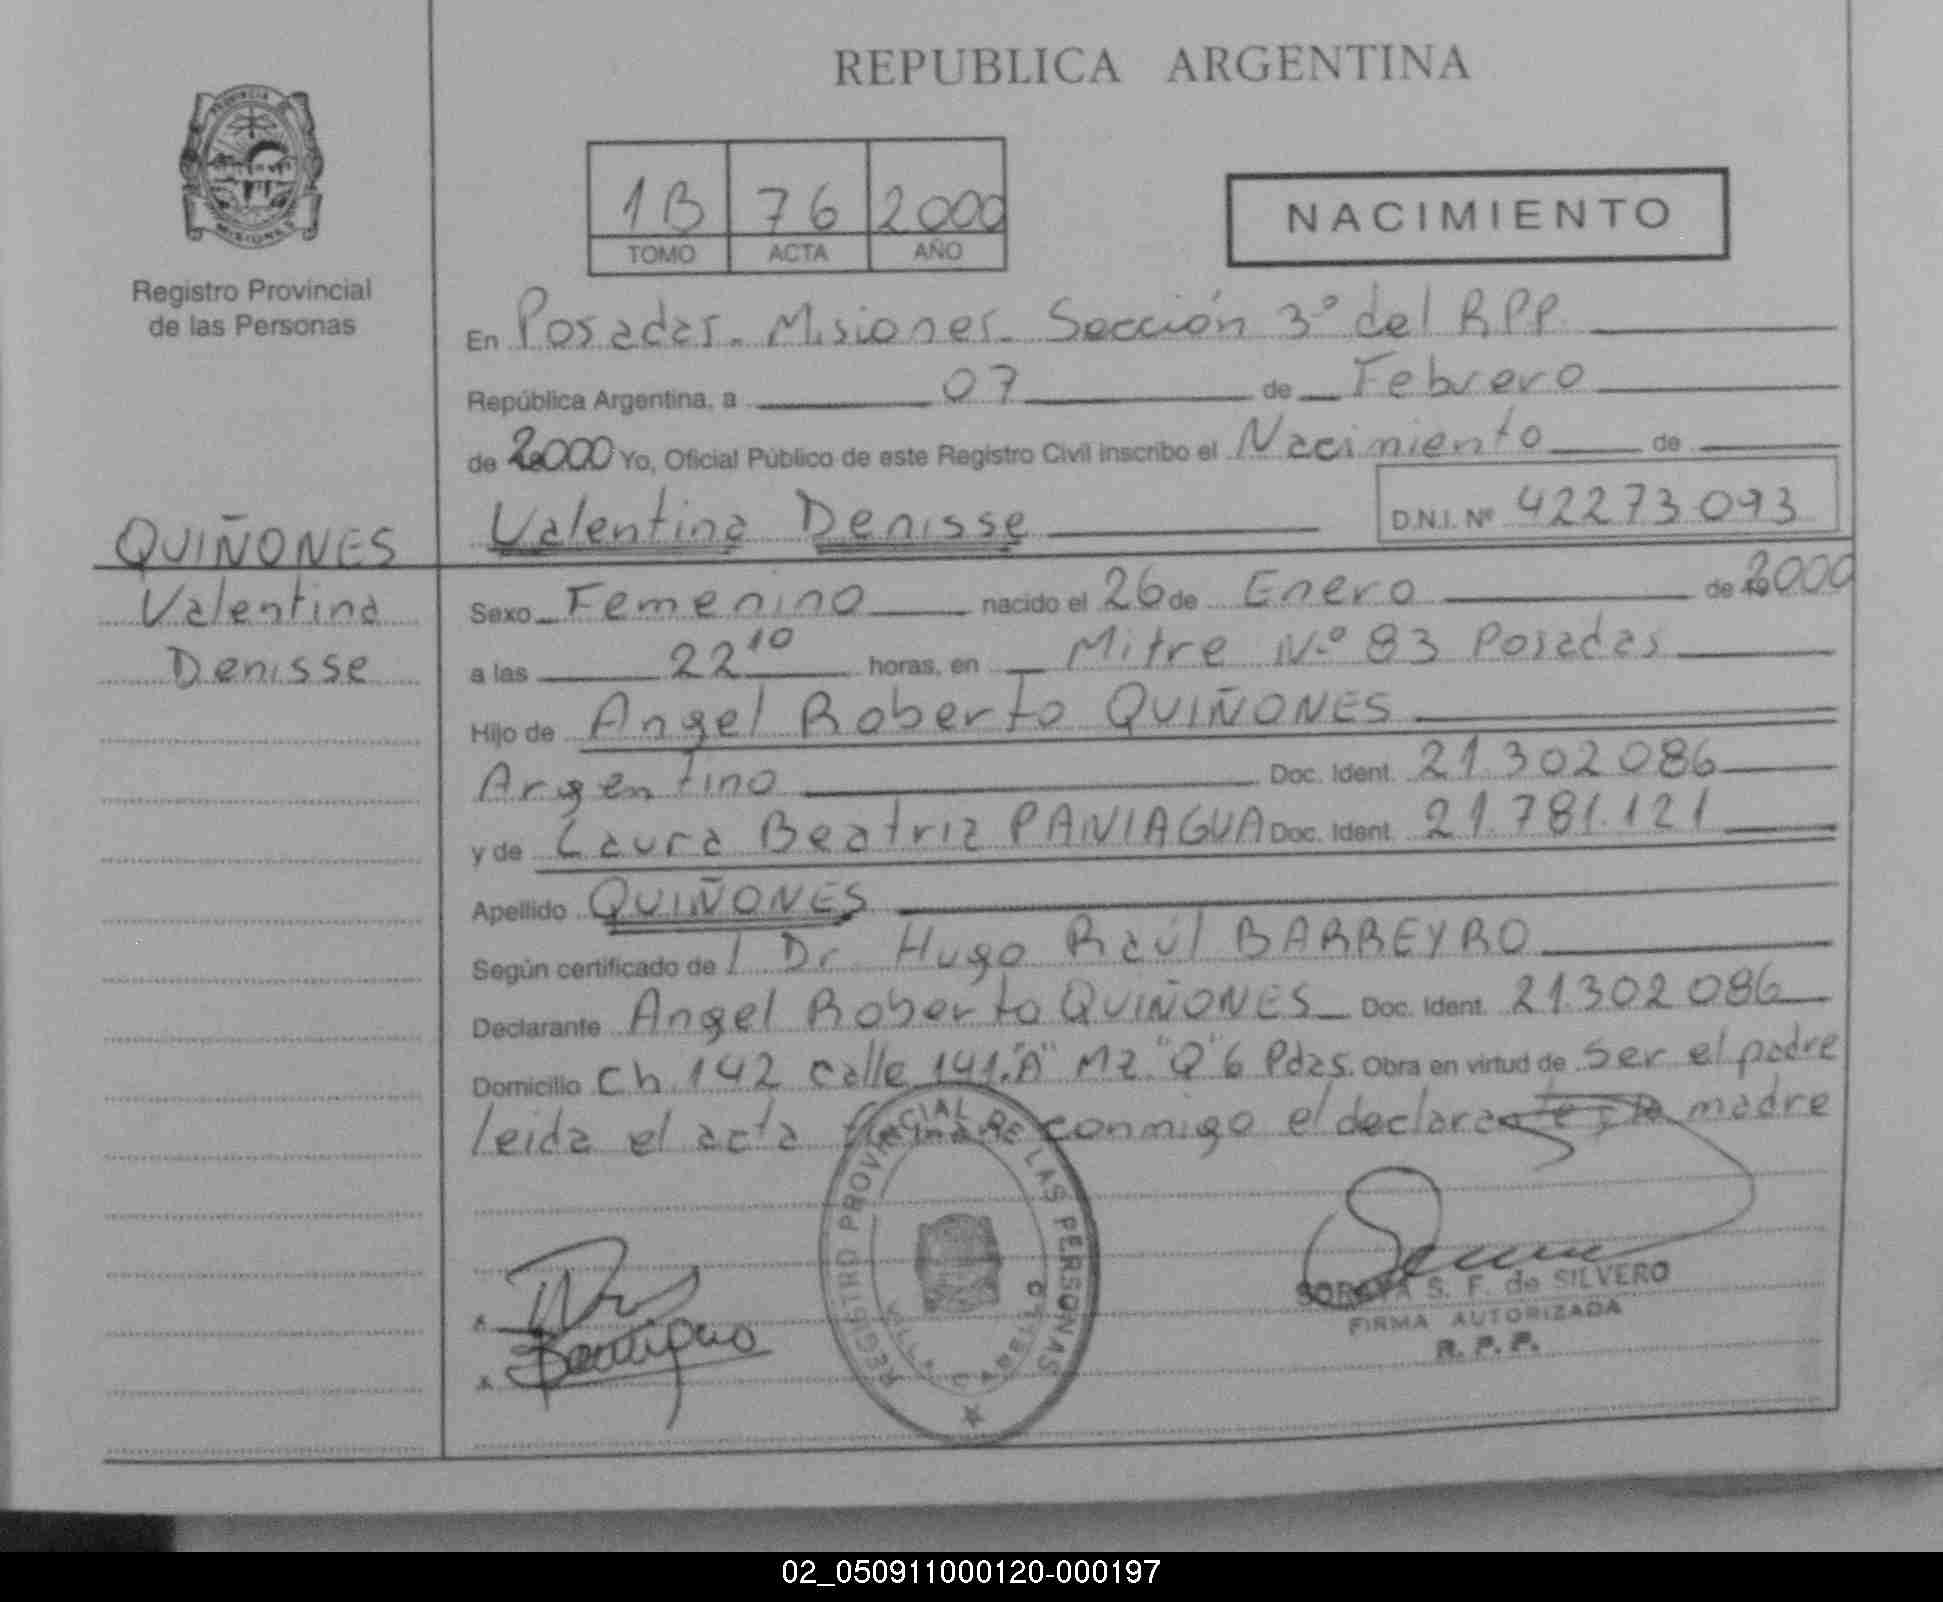 REPUBLICA ARGENTINA
PROVINCIA
MISIONES
Registro Provincial
de las Personas
1B 76 2000
TOMO ACTA AÑO
NACIMIENTO
En Posadas. Misiones. Sección 3º del RPP.
República Argentina, a 07 de Febrero
de 2000 Yo, Oficial Público de este Registro Civil inscribo el Nacimiento de
Valentina Denisse D.N.I. Nº 42273.093
QUIÑONES
Valentina
Denisse
Sexo Femenino nacido el 26 de Enero de 2000
a las 22 10 horas, en Mitre Nº 83 Posadas
Hijo de Angel Roberto QUIÑONES
Argentino Doc. Ident. 21.302086
y de Laura Beatriz PANIAGUA Doc. Ident. 21.781.121
Apellido QUIÑONES
Según certificado de l Dr. Hugo Raúl BARREYRO
Declarante Angel Roberto QUIÑONES Doc. Ident. 21.302086
Domicilio Ch. 142 calle 141."A" Mz "Q" 6 Pdas. Obra en virtud de ser el padre
leida el acta conmigo el declarante madre
REGISTRO PROVINCIAL DE LAS PERSONAS
SORAYA S. F. de SILVERO
FIRMA AUTORIZADA
R. P. P.
02_050911000120-000197